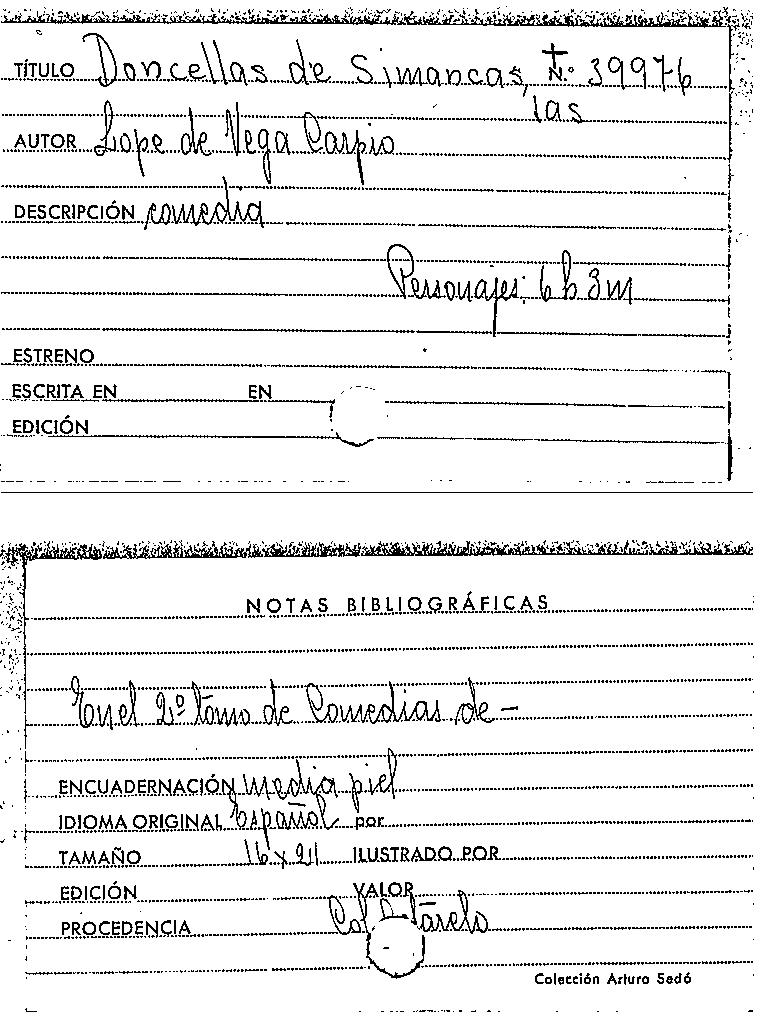 TÍTULO Doncellas de Simancas, N.º 39976
las
AUTOR Lope de Vega Carpio
DESCRIPCIÓN comedia
Personajes: 6 h 3 m
ESTRENO
ESCRITA EN EN
EDICIÓN
NOTAS BIBLIOGRÁFICAS
En el 2º tomo de Comedias de —
ENCUADERNACIÓN media piel
IDIOMA ORIGINAL Español por
TAMAÑO 16 x 21 ILUSTRADO POR
EDICIÓN VALOR
PROCEDENCIA Col
Colección Arturo Sedó